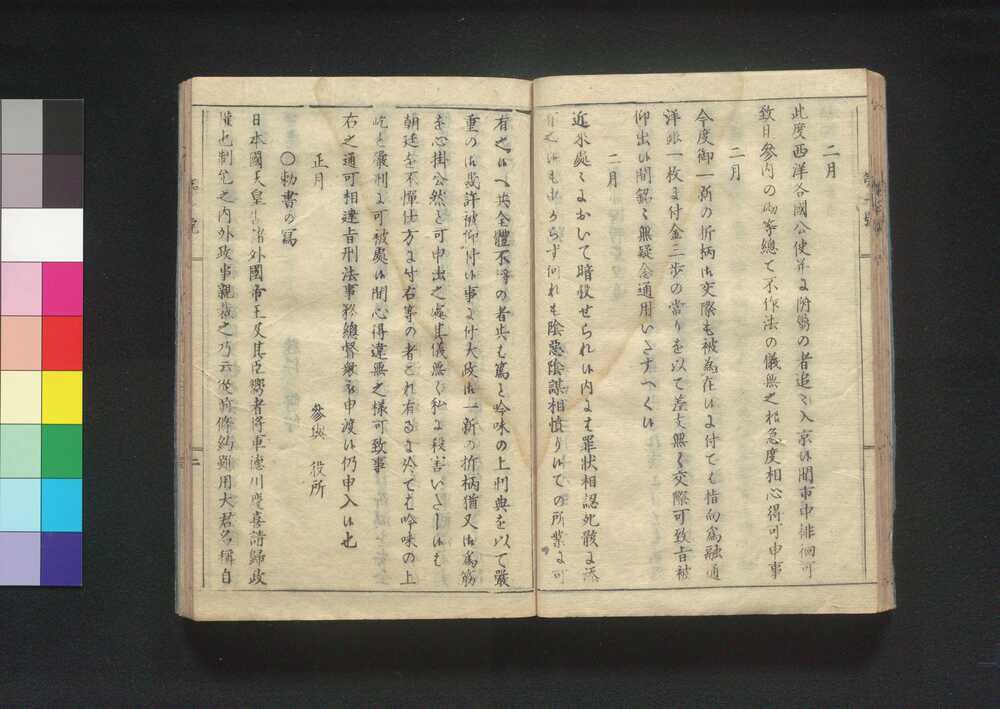 二月
此度西洋各國公使并ニ附属の者追々入京ハ間市中徘徊可
致且參内の向等總て不作法の儀無之様急度相心得可申事
二月
今度御一新の折柄御交際も被為在ハに付ても皆向為融通
洋銀一枚に付金三歩の當りを以て差支無く交際可致旨被
仰出ハ間銘々無疑念通用いたすべくハ
二月
近来處々において暗殺せられハ内には罪状相認死骸に添
有之ハも少からず何れも陰惡陰謀相憤りハての所業に可
有之ハへ共全體不將の者共は篤と吟味の上刑典を以て嚴
重の御裁許被仰付ハ事に付大政御一新の折柄猶又御為筋
を心掛公然と可申出之處其儀無く私に殺害いたしハも
朝廷を不憚仕方に付右等の者これ有るに於ては吟味の上
屹と嚴刑に可被處ハ間心得違無之様可致事
右之通可相達旨刑法事務總督被申渡ハ仍申入ハ也
正月
參與 役所
○勅書の寫
日本國天皇告諸外國帝王及其臣嚮者將軍德川慶喜請歸政
權也制允之内外政事親裁之乃云從前條約雖用大君名稱自